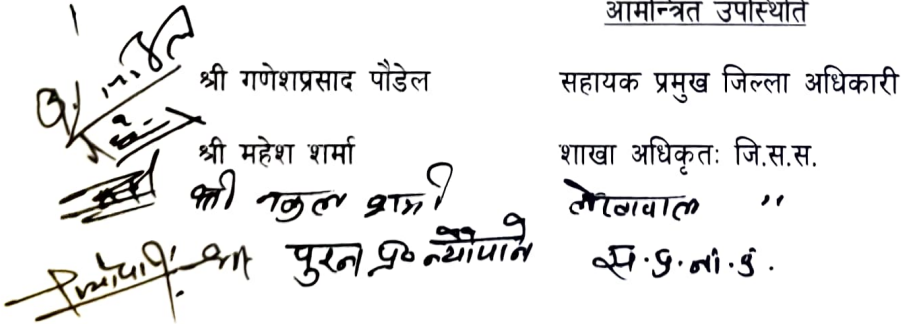 आमन्त्रित उपस्थिति
श्री गणेशप्रसाद पौडेल सहायक प्रमुख जिल्ला अधिकारी
श्री महेश शर्मा शाखा अधिकृतः जि.स.स.
श्री नकुल शर्मा लेखापाल "
श्री पुरन प्र० न्यौपाने